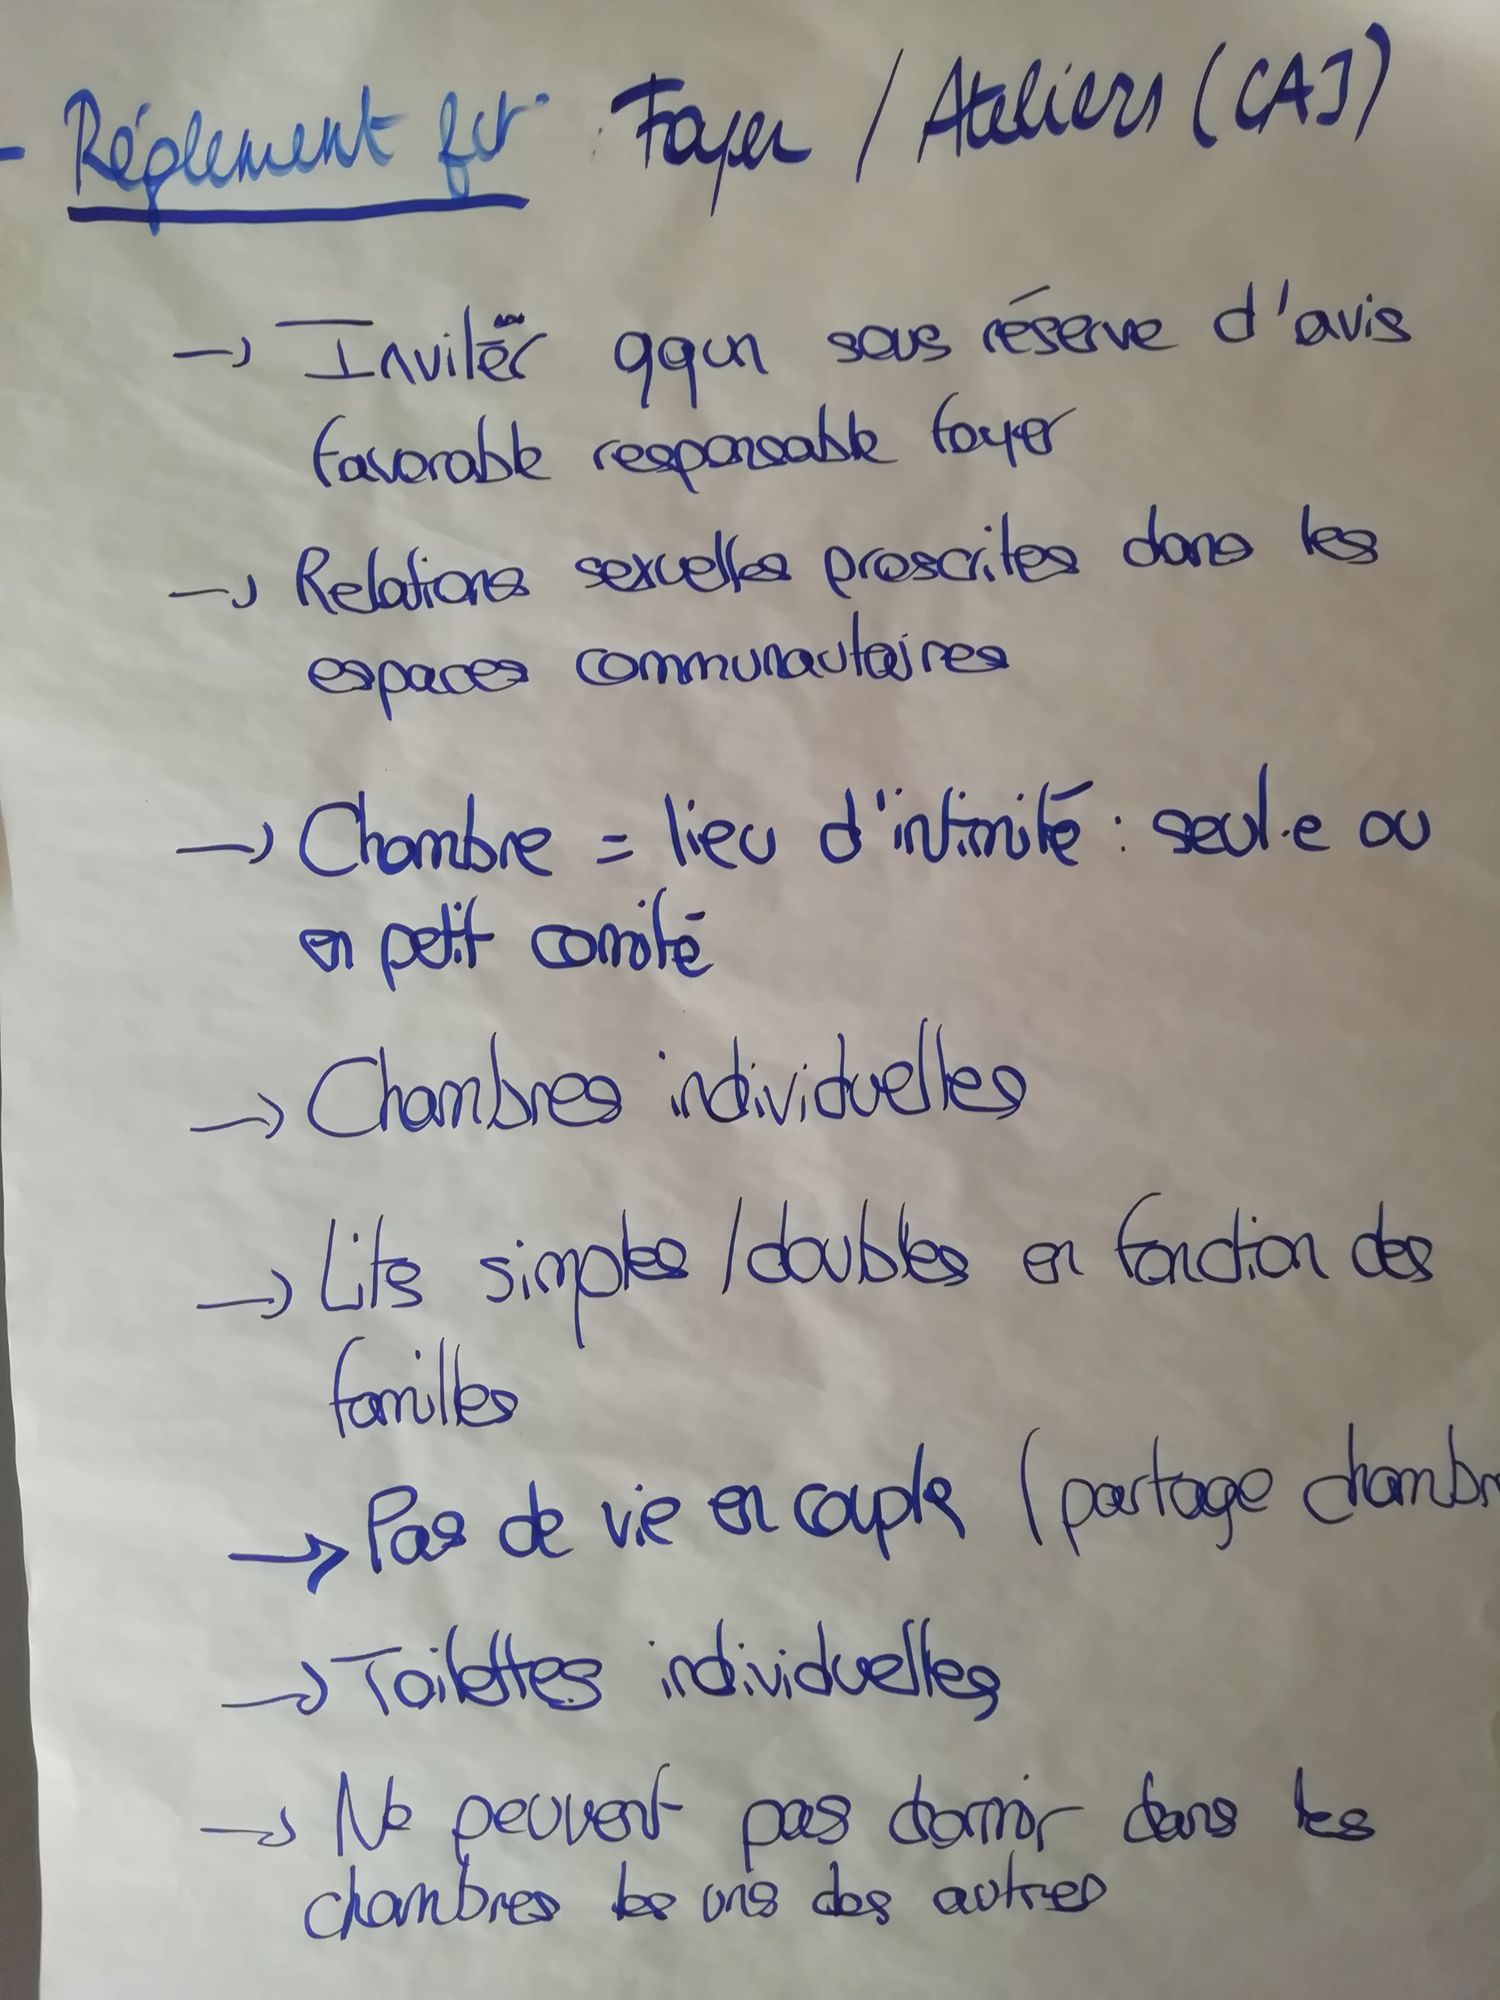 - Réglement fct : Foyer / Ateliers (CAJ)
→ Inviter qqun sous réserve d'avis
favorable responsable foyer
→ Relations sexuelles proscrites dans les
espaces communautaires
→ Chambre = lieu d'intimité : seul·e ou
en petit comité
→ Chambres individuelles
→ Lits simples / doubles en fonction des
familles
→ Pas de vie en couple (partage chambr
→ Toilettes individuelles
→ Ne peuvent pas dormir dans les
chambres les uns des autres